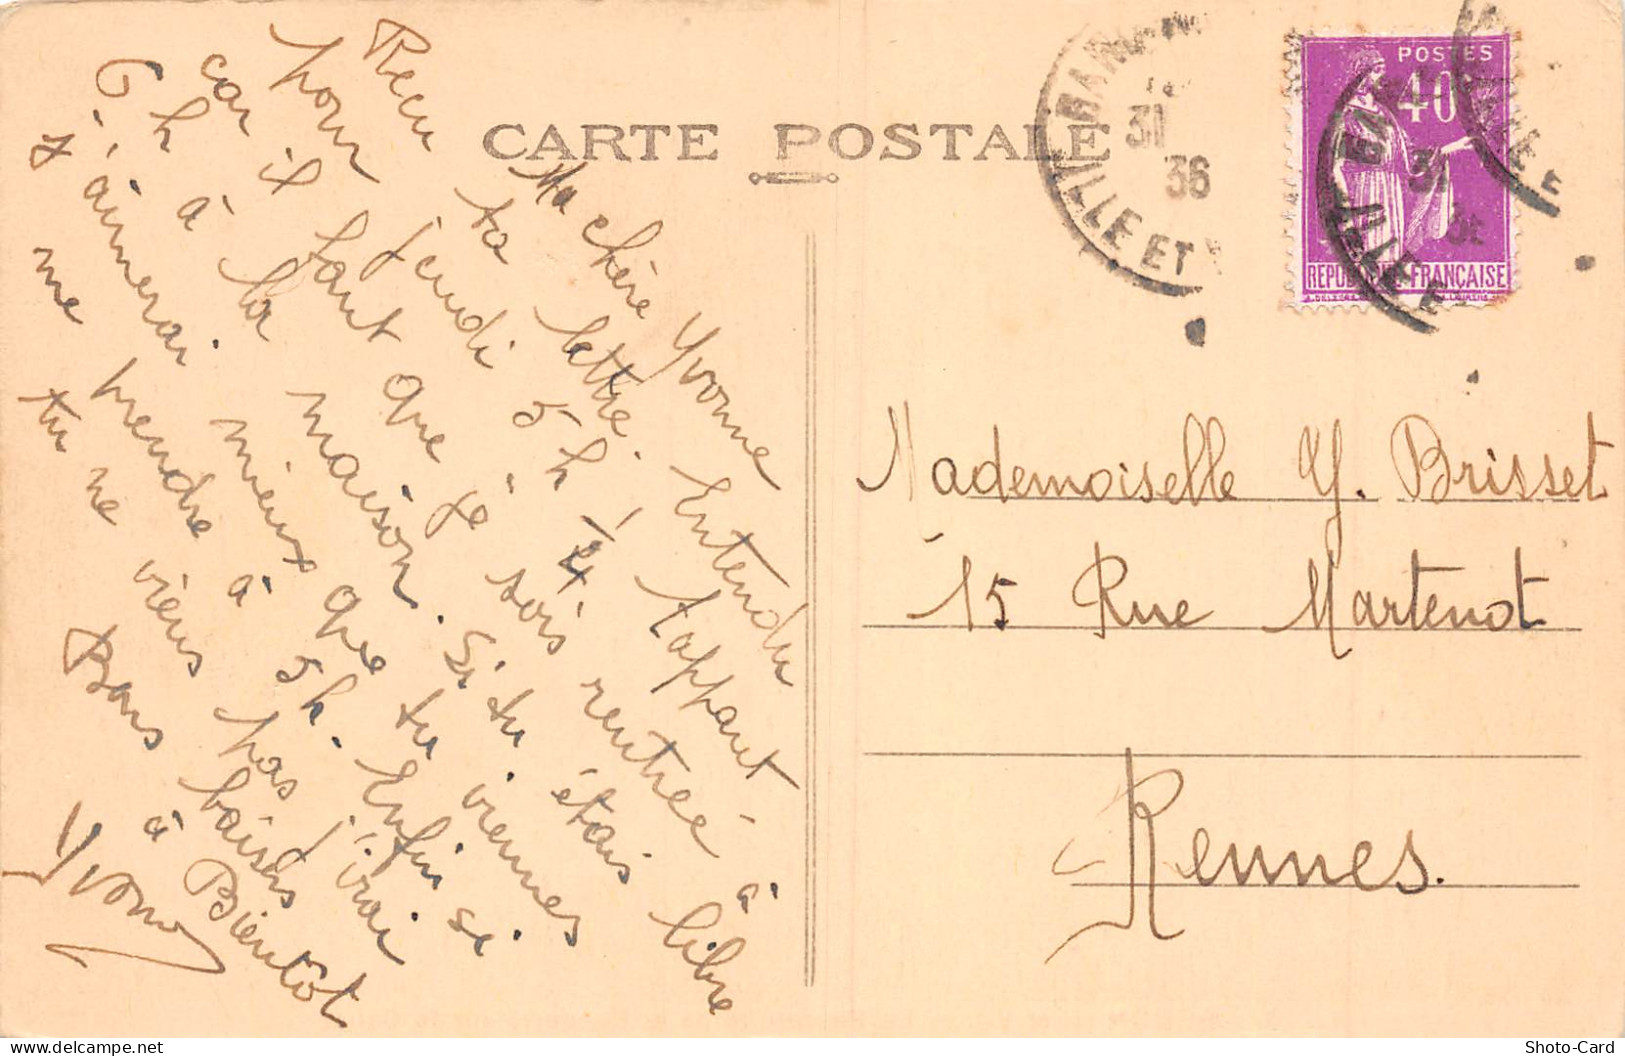 CARTE POSTALE
Ma chère Yvonne
Reçu ta lettre. Entendu
pour jeudi 5 h 1/4 tappant
car il faut que je sois rentrée à
6 h à la maison. Si tu étais libre
j'aimerai mieux que tu viennes
me prendre à 5 h. Enfin si
tu ne viens pas j'irai
Bons baisers
à Bientôt
Yvonne
POSTES
40
REPUBLIQUE FRANÇAISE
31
36
ILLE ET
31
ILLE E
Mademoiselle Y. Brisset
15 Rue Martenot
Rennes.
Shoto-Card